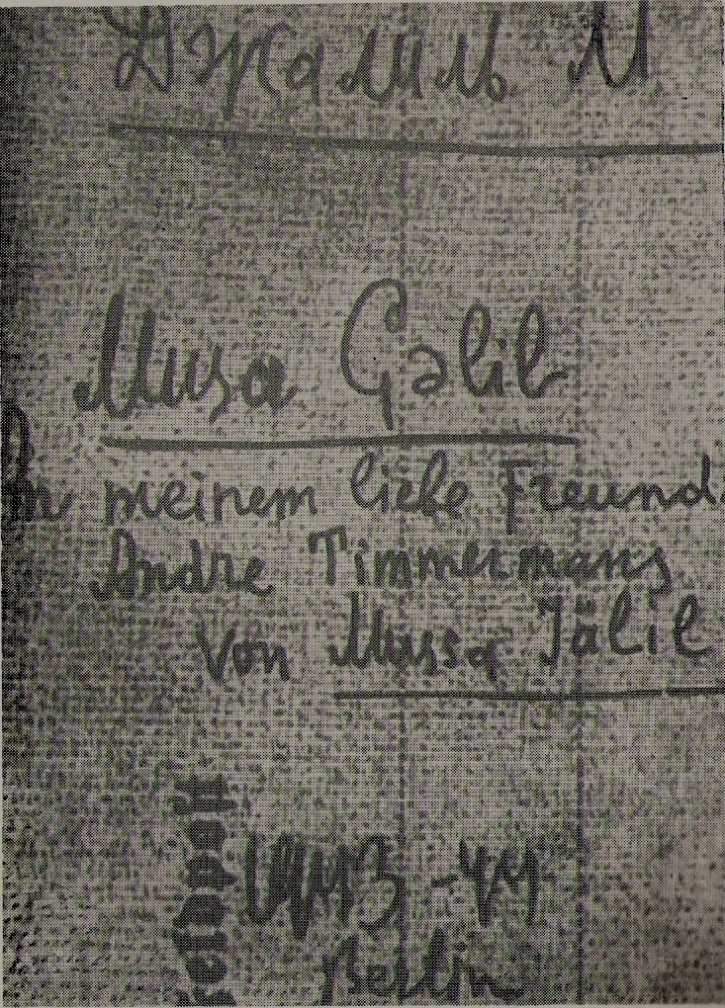 Джалиль М
Musa Gəlil
An meinem liebe Freund
Andre Timmermans
von Mussa Jälil
1943-44
Berlin